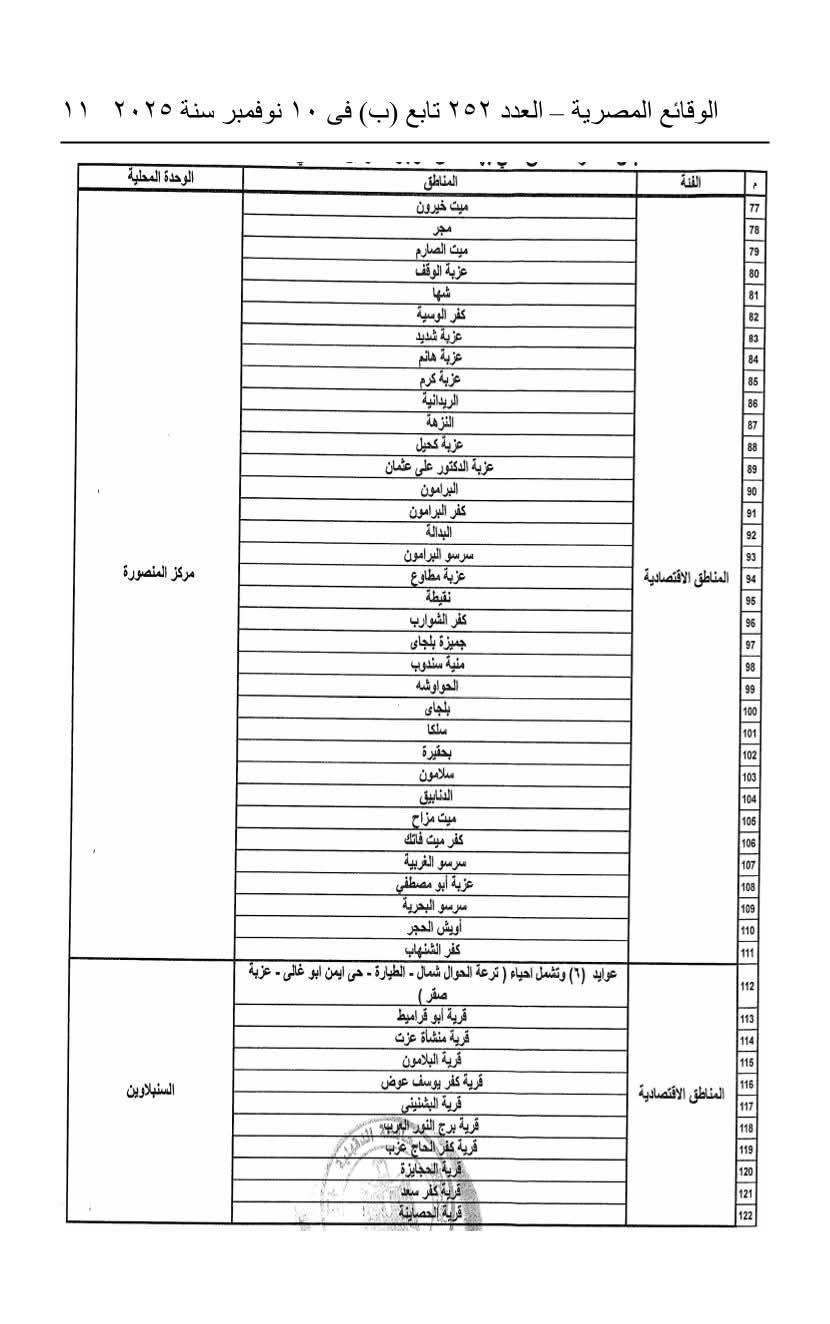 الوقائع المصرية – العدد ٢٥٢ تابع (ب) فى ١٠ نوفمبر سنة ٢٠٢٥ ١١
م الفئة المناطق الوحدة المحلية
77 ميت خيرون
78 مجر
79 ميت الصارم
80 عزبة الوقف
81 شها
82 كفر الوسية
83 عزبة شديد
84 عزبة هانم
85 عزبة كرم
86 الريدانية
87 النزهة
88 عزبة كحيل
89 عزبة الدكتور على عثمان
90 البرامون
91 كفر البرامون
92 البدالة
93 سرسو البرامون
94 المناطق الاقتصادية عزبة مطاوع مركز المنصورة
95 نقيطة
96 كفر الشوارب
97 جميزة بلجاى
98 منية سندوب
99 الحواوشه
100 بلجاى
101 سلكا
102 بحقيرة
103 سلامون
104 الدنابيق
105 ميت مزاح
106 كفر ميت فاتك
107 سرسو الغربية
108 عزبة أبو مصطفي
109 سرسو البحرية
110 أويش الحجر
111 كفر الشنهاب
112 عوايد (٦) وتشمل احياء ( ترعة الحوال شمال - الطيارة - حى ايمن ابو غالى - عزبة
صقر )
113 قرية أبو قراميط
114 قرية منشأة عزت
115 قرية البلامون
116 المناطق الاقتصادية قرية كفر يوسف عوض السنبلاوين
117 قرية البشنيني
118 قرية برج النور العرب
119 قرية كفر الحاج عزب
120 قرية الحجايزة
121 قرية كفر سعد
122 قرية الحصاينة